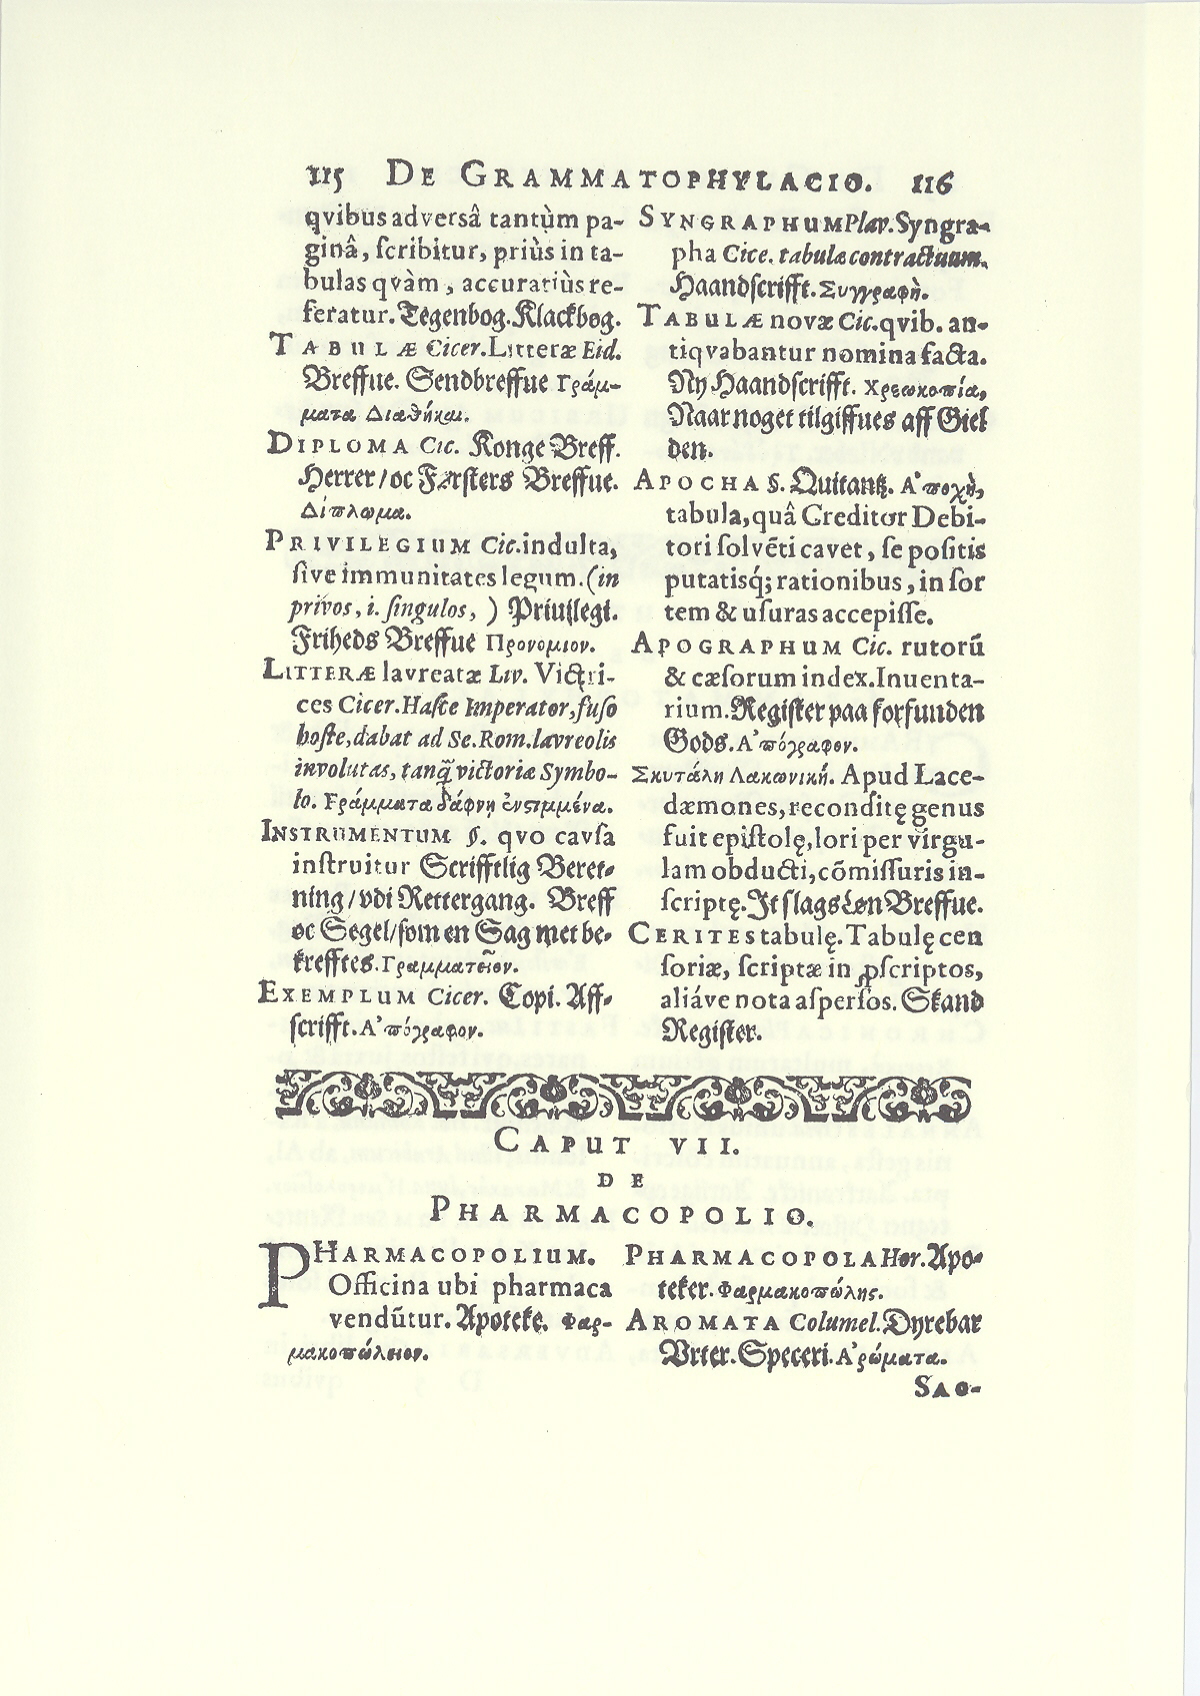 115 DE GRAMMATOPHYLACIO. 116
qvibus adversâ tantùm pa-
ginâ, ſcribitur, priùs in ta-
bulas qvàm, accuratiùs re-
feratur. Tegenbog. Klackbog.
TABULÆ Cicer. Litteræ Eid.
Breffue. Sendbreffue Γράμ-
ματα Διαθήκαι.
DIPLOMA Cic. Konge Breff.
Herrer / oc Førſters Breffue.
Δίπλωμα.
PRIVILEGIUM Cic. indulta,
ſive immunitates legum. (in
privos, i. ſingulos, ) Priuilegi.
Friheds Breffue Προνομιον.
LITTERÆ lavreatæ Liv. Victri-
ces Cicer. Haſce Imperator, fuſo
hoſte, dabat ad Se. Rom. lavreolis
involutas, tanq̃ victoriæ Symbo-
lo. Γράμματα δάφνῃ ἐνεπμμένα.
INSTRUMENTUM ſ. qvo cavſa
inſtruitur Scrifftlig Beret-
ning / vdi Rettergang. Breff
oc Segel / ſom en Sag met be-
krefftes. Γραμματεῖον.
EXEMPLUM Cicer. Copi. Aff-
ſcrifft. Α᾿πόγραφον.
SYNGRAPHUM Plav. Syngra-
pha Cice. tabulæ contractuum.
Haandſcrifft. Συγγραφὴ.
TABULÆ novæ Cic. qvib. an-
tiqvabantur nomina facta.
Ny Haandſcrifft. Χρεωκοπία,
Naar noget tilgiffues aff Giel
den.
APOCHA S. Quitantz. Α᾿ποχὴ,
tabula, quâ Creditor Debi-
tori ſolvẽti cavet, ſe poſitis
putatisq́; rationibus, in ſor
tem & uſuras accepiſſe.
APOGRAPHUM Cic. rutorũ
& cæſorum index. Inuenta-
rium. Regiſter paa forfunden
Gods. Α᾿πόγραφον.
Σκυτάλη Λακωνική. Apud Lace-
dæmones, reconditę genus
fuit epiſtolę, lori per virgu-
lam obducti, cõmiſſuris in-
ſcriptę. It ſlags Løn Breffue.
CERITES tabulę. Tabulę cen
ſoriæ, ſcriptæ in ꝓſcriptos,
aliáve nota aſperſos. Skand
Regiſter.
CAPUT VII.
DE
PHARMACOPOLIO.
PHARMACOPOLIUM.
Officina ubi pharmaca
vendũtur. Apoteke. Φαρ-
μακοπώλειον.
PHARMACOPOLA Hor. Apo-
teker. Φαρμακοπώλης.
AROMATA Columel. Dyrebar
Vrter. Speceri. Α᾿ρώματα.
SAC-